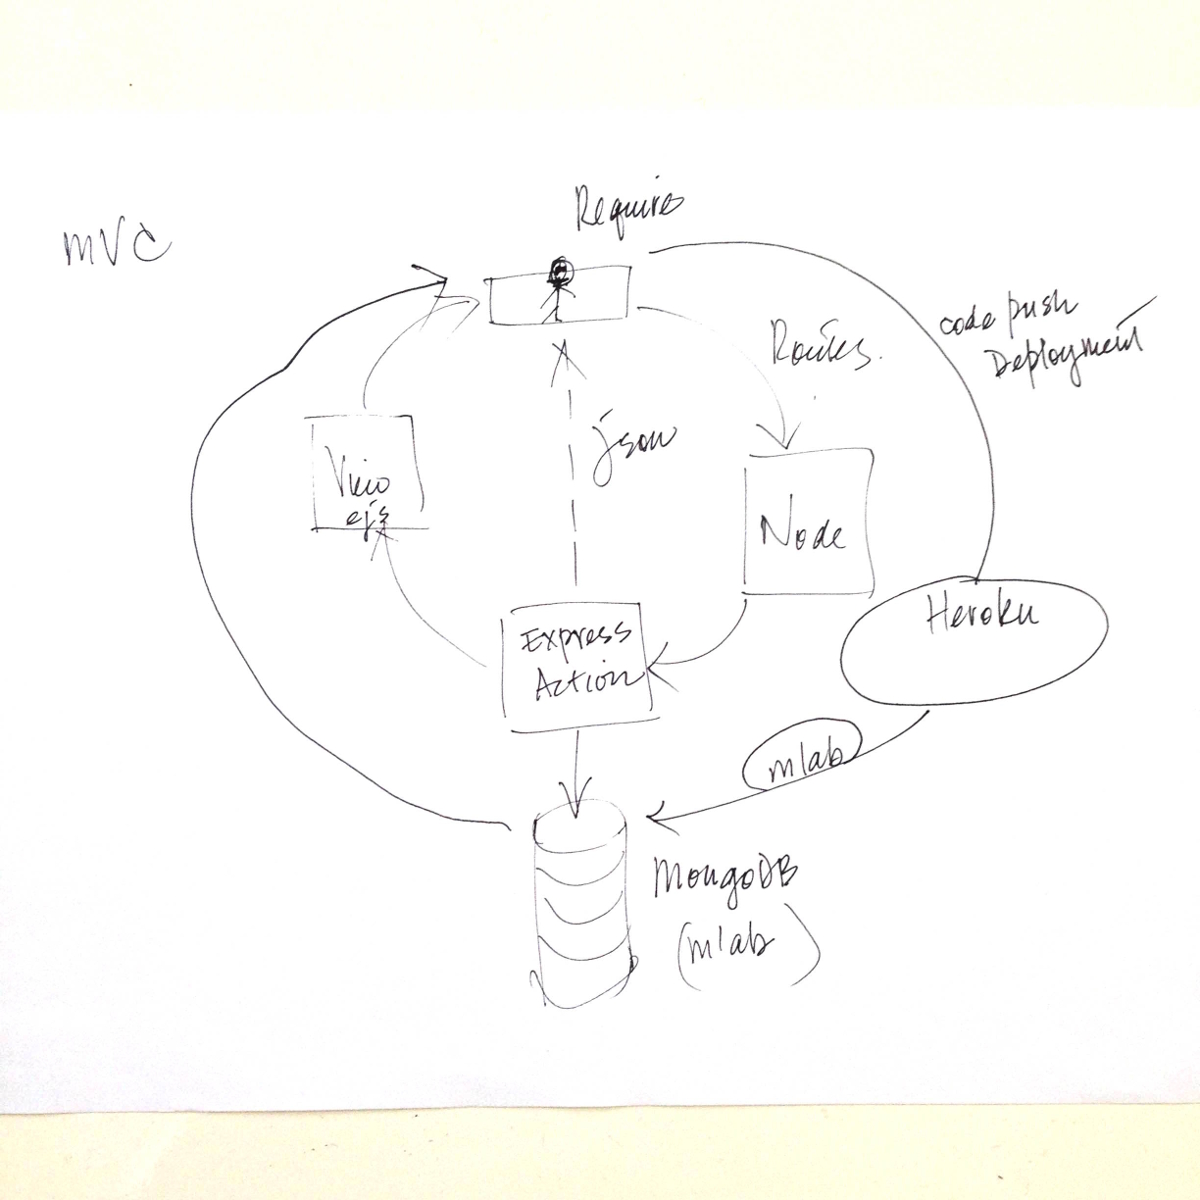 Requires
MVC
code push
Deployment
Routes.
json
View
ejs
Node
Heroku
Express
Action
mlab
MongoDB
(mlab)